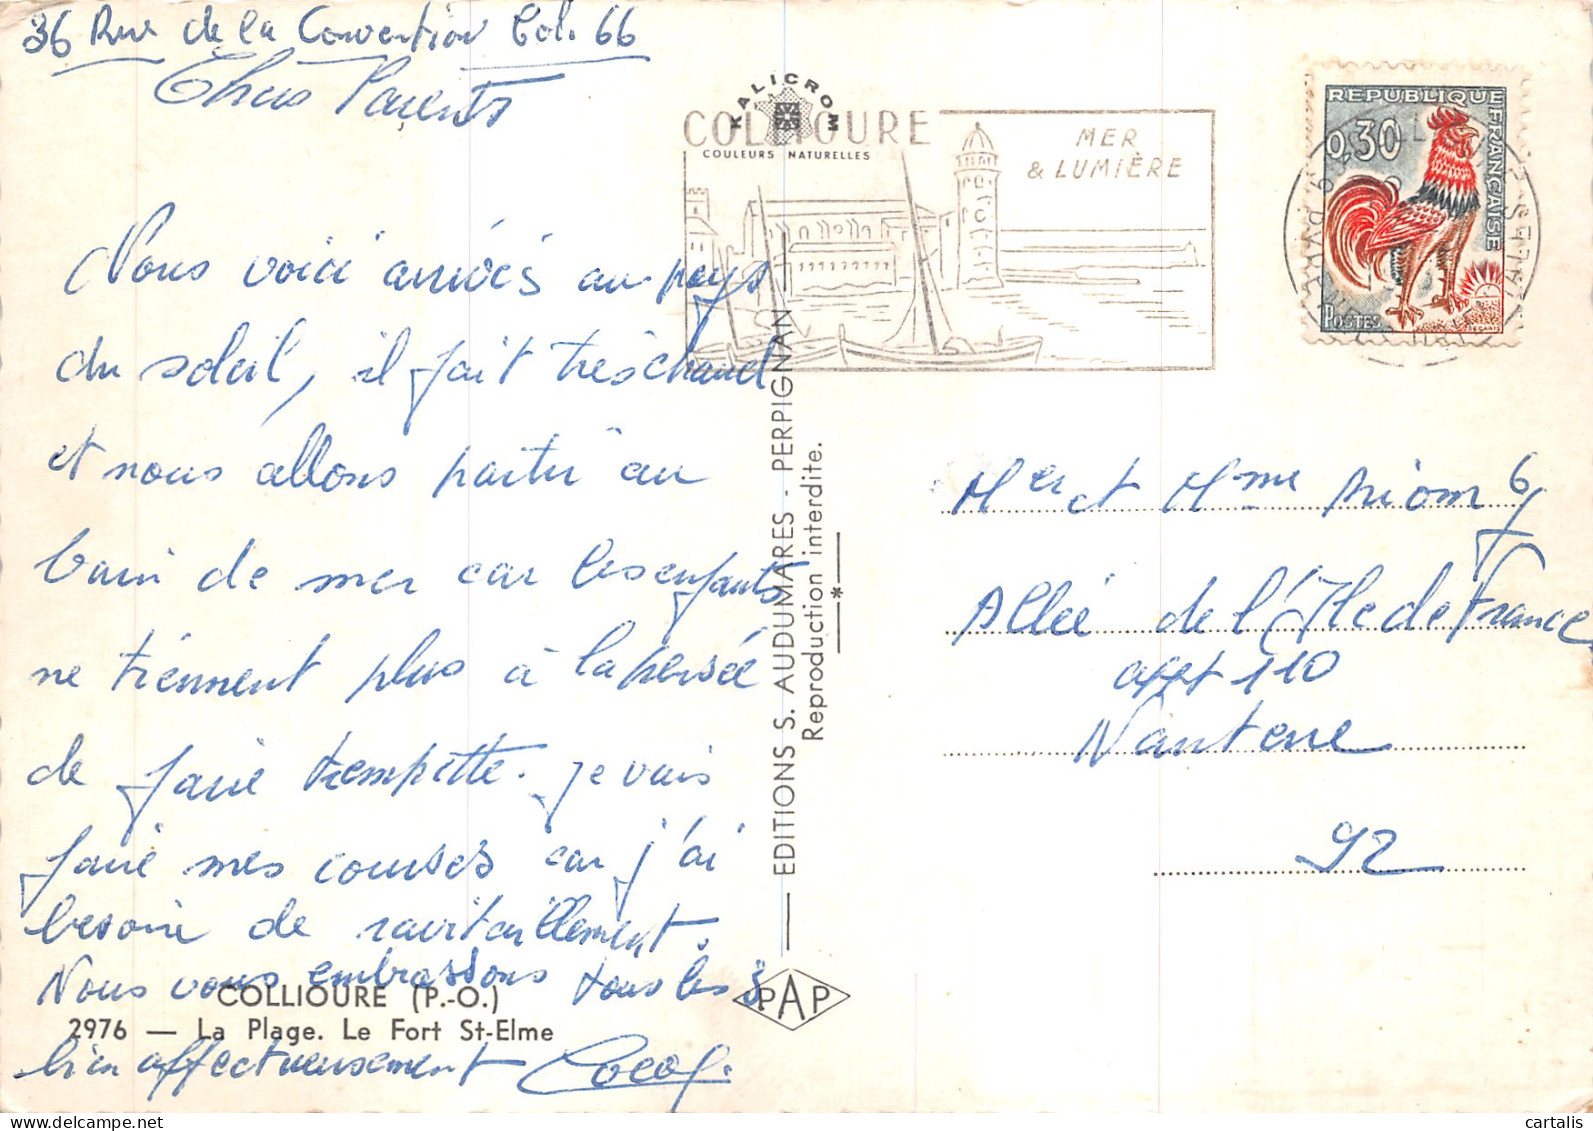 36 Rue de la Convention Col. 66
Chers Parents
Nous voici arrivés au pays
du soleil, il fait très chaud
et nous allons partir au
bain de mer car les enfants
ne tiennent plus à la pensée
de faire trempette. je vais
faire mes courses car j'ai
besoin de ravitaillement.
Nous vous embrassons tous les 3
bien affectueusement
COLLIOURE (P.-O.)
2976 — La Plage. Le Fort St-Elme
KALICROM
COULEURS NATURELLES
EDITIONS S. AUDUMARES - PERPIGNAN
Reproduction interdite.
PAP
COLLIOURE
MER
& LUMIÈRE
REPUBLIQUE FRANÇAISE
0,30
POSTES
Mr et Mme
Allée de l'Ile de France
appt 110
Nanterre
92
cartalis